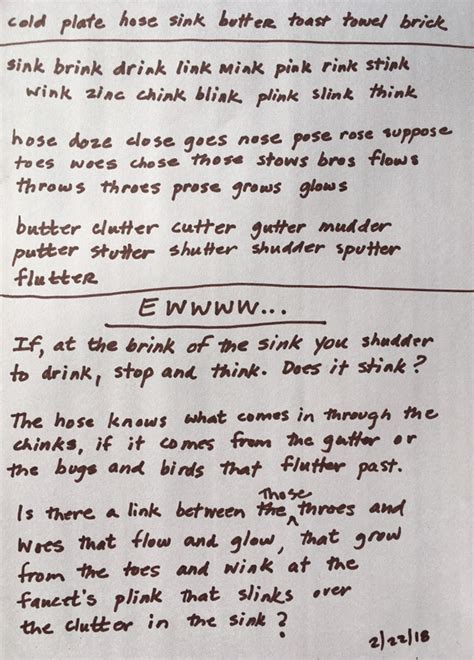 cold plate hose sink butter toast towel brick
sink brink drink link mink pink rink stink
wink zinc chink blink plink slink think
hose doze close goes nose pose rose suppose
toes woes chose those stows bros flows
throws throes prose grows glows
butter clutter cutter gutter mudder
putter stutter shutter shudder sputter
flutter
EWWWW...
If, at the brink of the sink you shudder
to drink, stop and think. Does it stink?
The hose knows what comes in through the
chinks, if it comes from the gutter or
the bugs and birds that flutter past.
Those
Is there a link between the throes and
woes that flow and glow, that grow
from the toes and wink at the
faucet's plink that slinks over
the clutter in the sink?
2/22/18